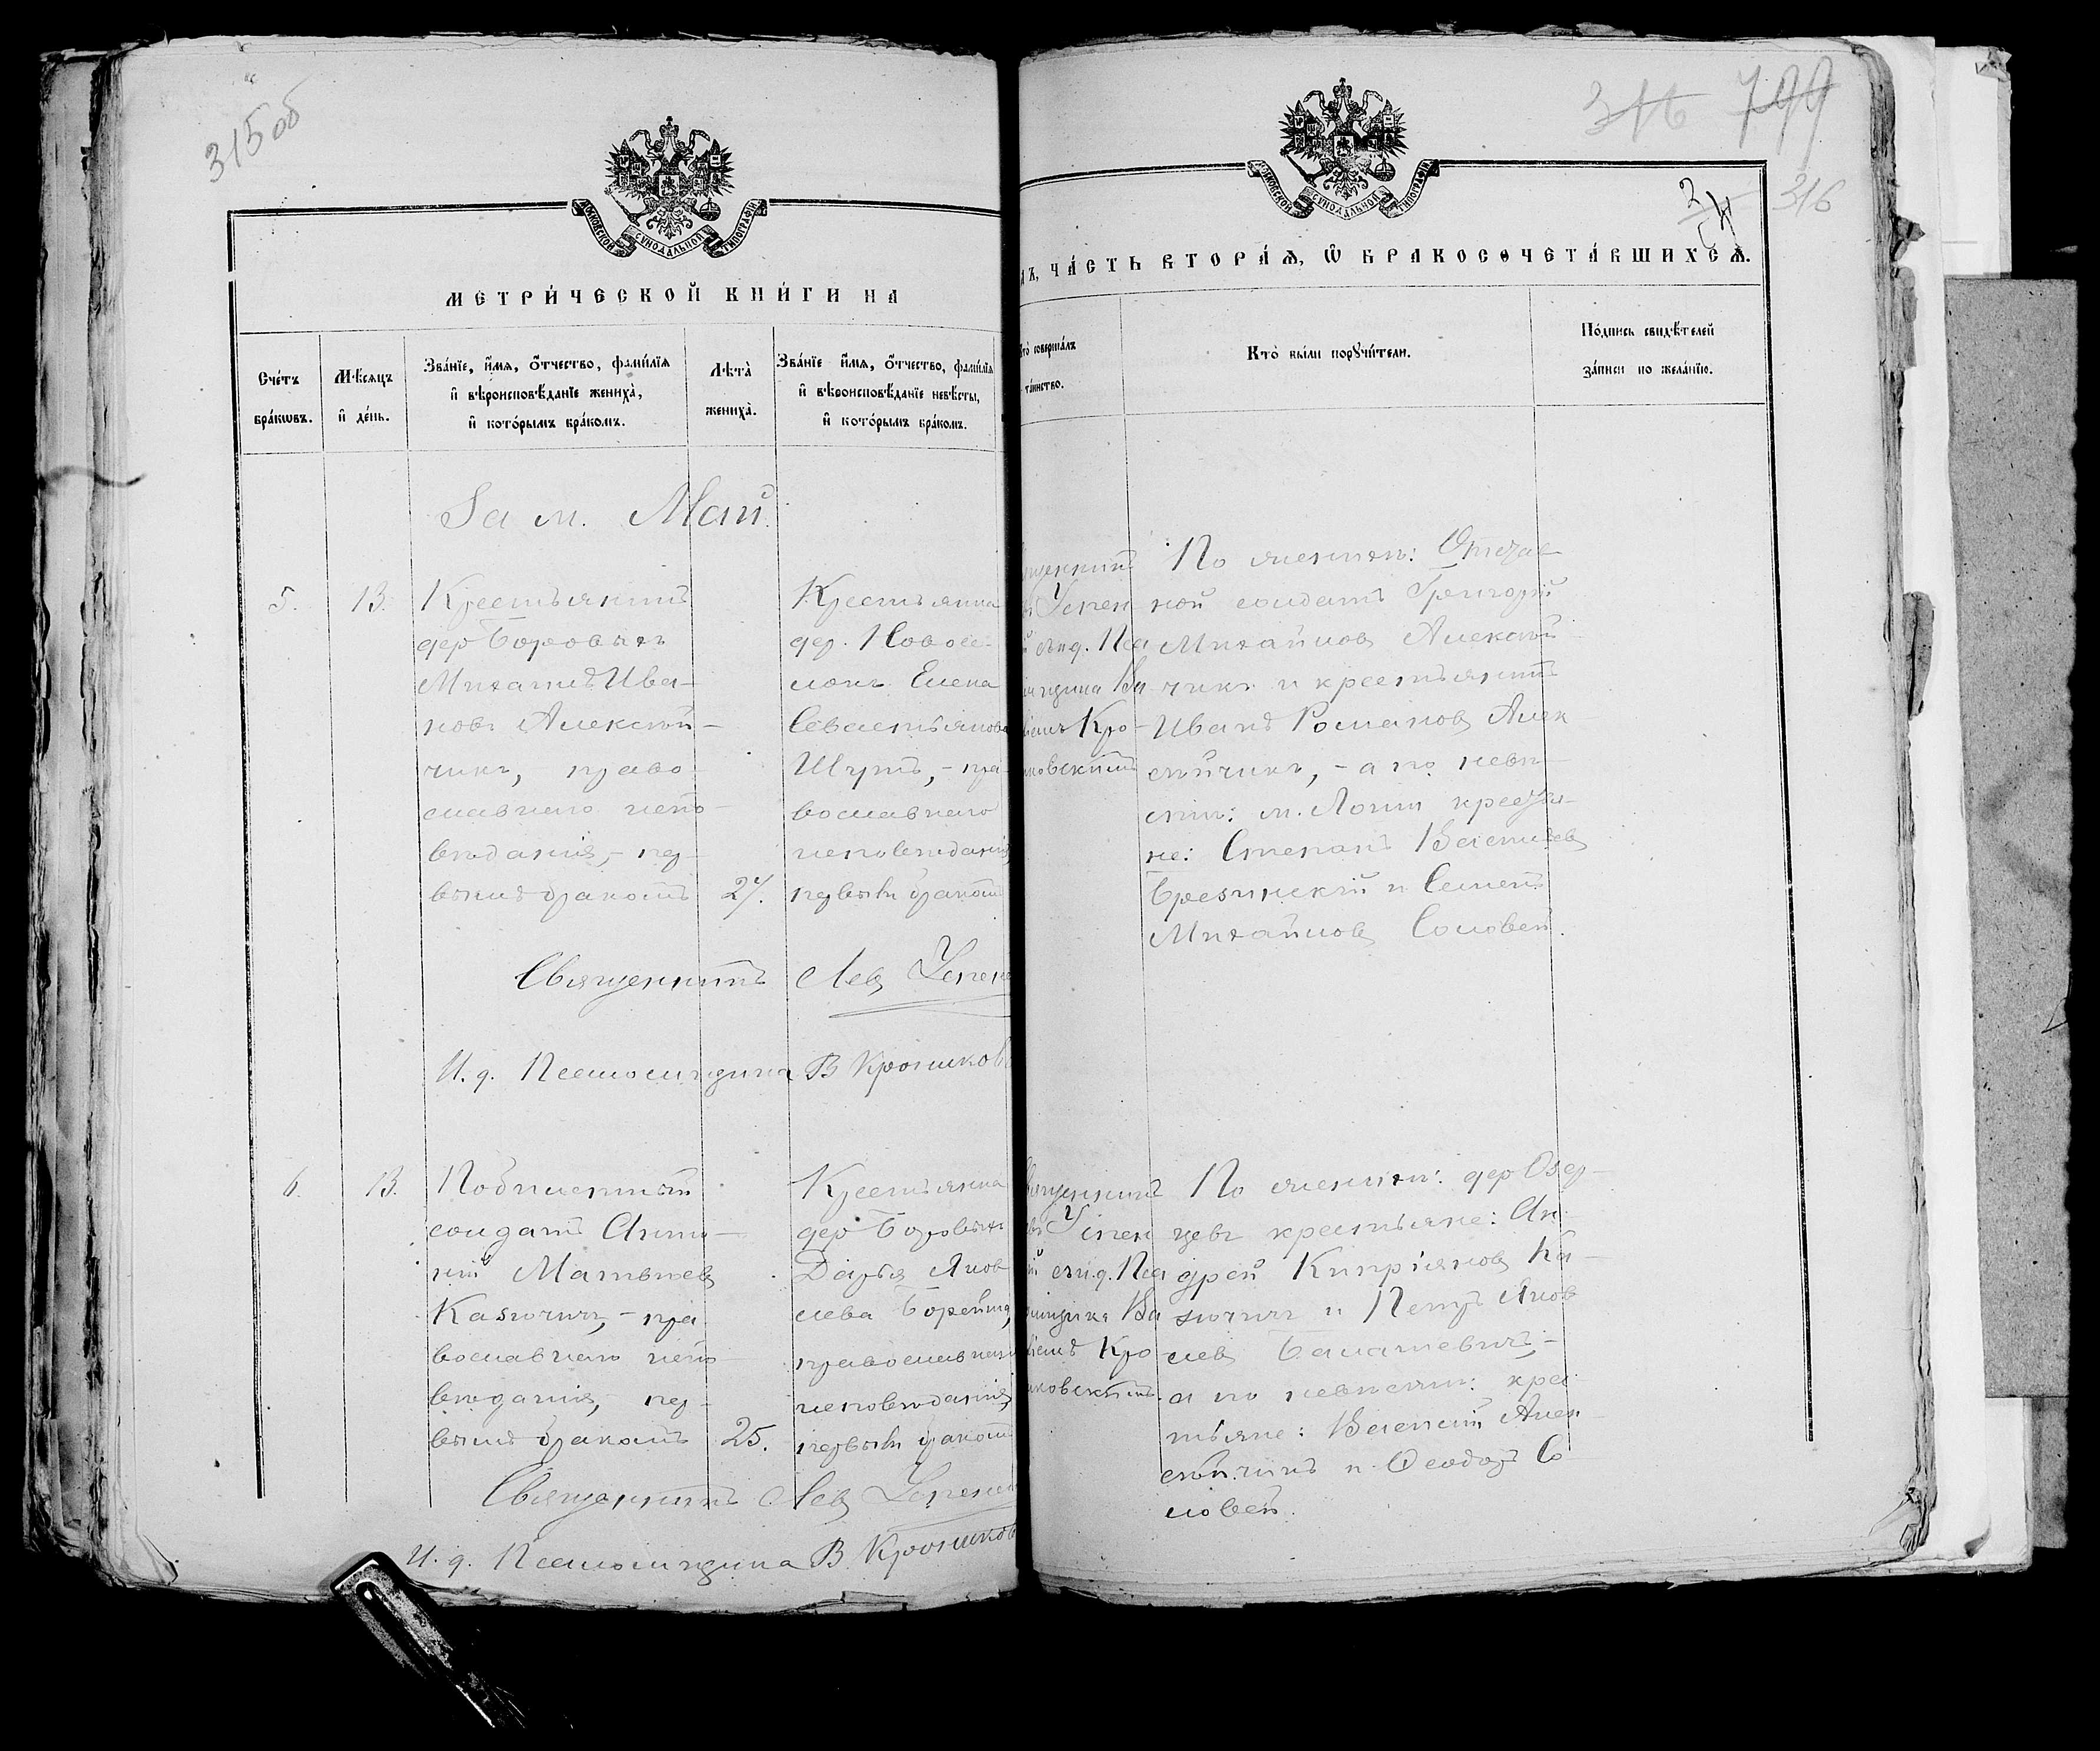 315 об
МОСКОВСКОЙ СѴНОДАЛЬНОЙ ТИПОГРАФІИ
МЕТРИ́ЧЕСКОЙ КНИ́ГИ НА
Сче́тъ бра́кѡвъ.
Мѣсяцъ и҆ де́нь.
Зва́нїе, и҆́мя, о҆́тчество, фами́лїя
и҆ вѣроисповѣ́данїе жениха̀,
и҆ кото́рымъ бра́комъ.
Лѣта̀ жениха̀.
Зва́нїе и҆́мя, о҆́тчество, фами́лїя
и҆ вѣроисповѣ́данїе невѣ́сты,
и҆ кото́рымъ бра́комъ.
За м. Май
5.
13.
Крестьянинъ
дер Боровыхъ
Михаилъ Ива-
новъ Алексѣй-
чикъ, право-
славнаго испо-
вѣданія, - пер-
вымъ бракомъ
27.
Крестьянка
дер. Новосе-
локъ Елена
Севастьянова
Шутъ, - пра-
вославнаго
исповѣданія
первымъ бракомъ
Священникъ Левъ Успенс
И. д. Псаломщика В Кроликов
6.
13.
Побилетный
солдатъ Анто-
ній Матвѣевъ
Казючичъ, - пра
вославнаго испо-
вѣданія, пер-
вымъ бракомъ
25.
Крестьянка
дер Боровыхъ
Дарья Яков
лева Борейша,
православнаго
исповѣданія,
первымъ бракомъ
Священникъ Левъ Успенск
И. д. Псаломщика В. Кроликов
316 799
316
2
МОСКОВСКОЙ СѴНОДАЛЬНОЙ ТИПОГРАФІИ
ЧА́СТЬ ВТОРА́Ѧ, Ѽ БРАКОСОЧЕТА́ВШИХСѦ.
соверша́лъ
та́инство.
Кто̀ бы́ли порꙋчи́тели.
По́дпись свидѣ́телей
за́писи по жела́нїю.
щенникъ
Успен
й и ид. Пса
ломщика Ва
Кро-
ликовскимъ
По женихѣ: Отстав
ной солдатъ Григорій
Михайловъ Алексѣй-
чикъ и крестьянинъ
Иванъ Романовъ Алек-
сѣйчикъ, - а по невѣ-
стѣ: м. Логи крестья-
не: Степанъ Васильевъ
Брезинскій и Семенъ
Михайловъ Соловей.
вященникъ
Успен
й и ид. Пса
ломщика Ва
Кро
ликовскимъ.
По женихѣ: дер Озер-
цевъ крестьяне: Ан-
дрей Кипріяновъ Ка-
зючичъ и Петръ Яков
левъ Балашевичъ, -
а по невѣстѣ: крес-
тьяне: Василій Алек-
сѣйчикъ и Ѳеодоръ Со-
ловей.